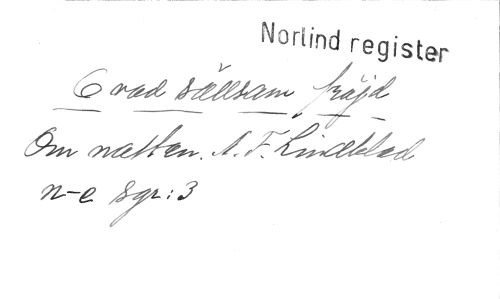 Norlind register
O vad sällsam fröjd
Om natten. A. F. Lindblad
n-e sgr: 3